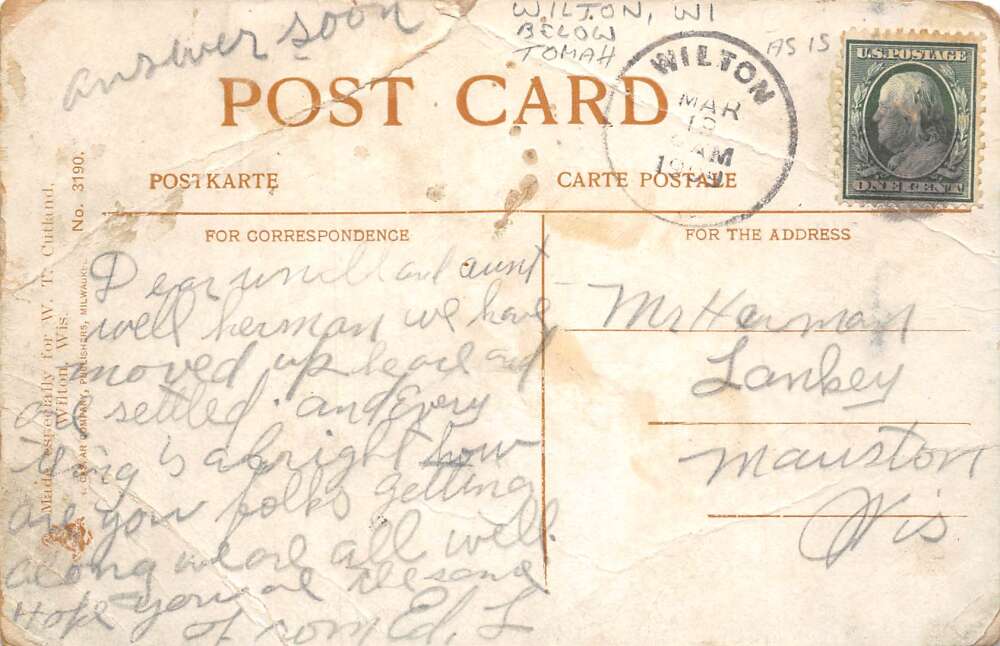 answer soon
WILTON, WI
BELOW
TOMAH
AS IS
WILTON
MAR
AM
U.S. POSTAGE
ONE CENT
POST CARD
POSTKARTE
CARTE POSTALE
FOR CORRESPONDENCE
FOR THE ADDRESS
Made especially for W. T. Cutland,
Wilton, Wis.
No. 3190.
COMPANY, PUBLISHERS, MILWAUKEE
Dear uncll and aunt
well herman we have
moved up heare and
are settled. and Every
thing is alright how
are you folks getting
along we are all well.
Hope you are the same
From Ed. L
Mr Herman
Lankey
Mauston
Wis